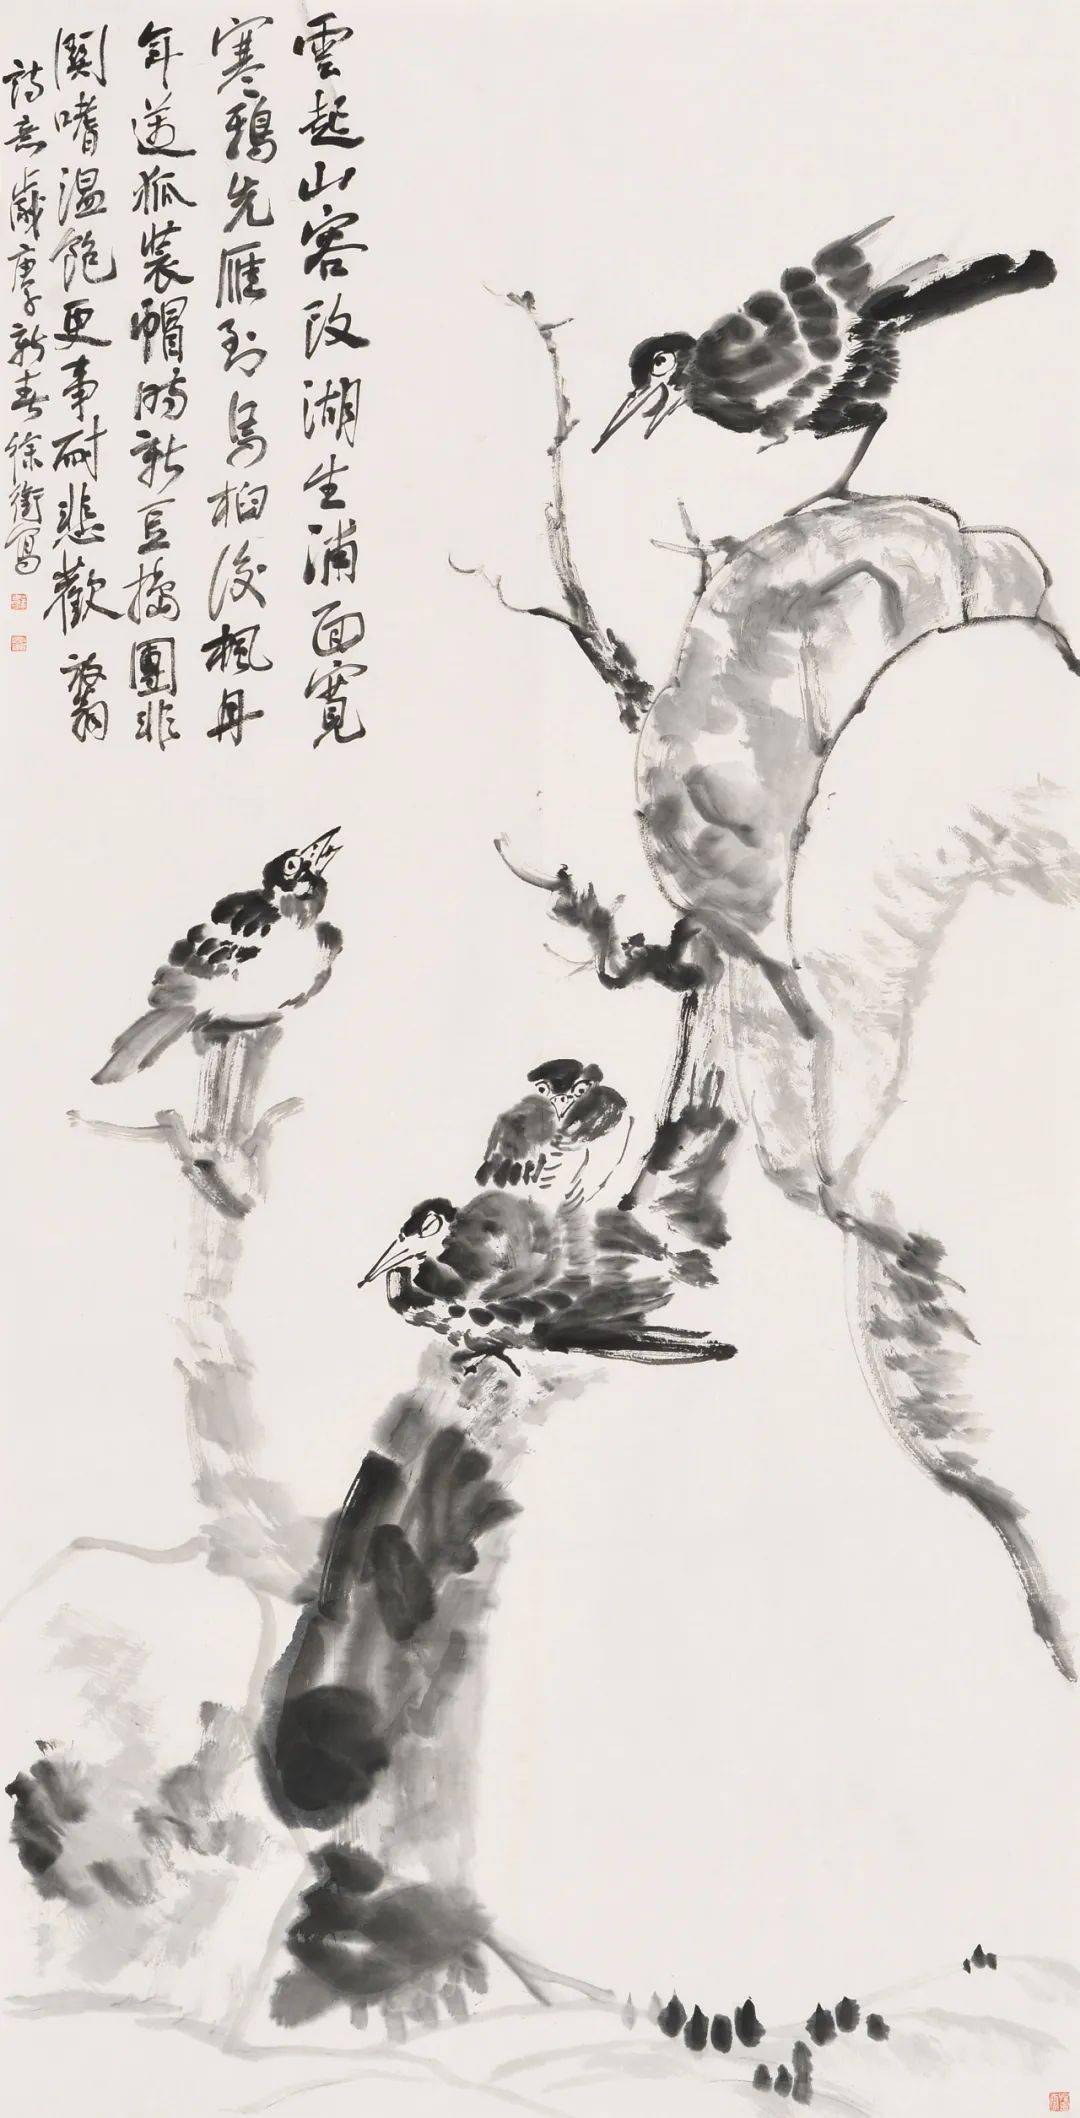 雲起山容改湖生浦面寬
寒鴉先雁到烏桕後楓丹
年邁狐裝帽時新豆擣團非
關嗜温飽更事耐悲歡 放翁
詩意歲庚子新春徐衛寫